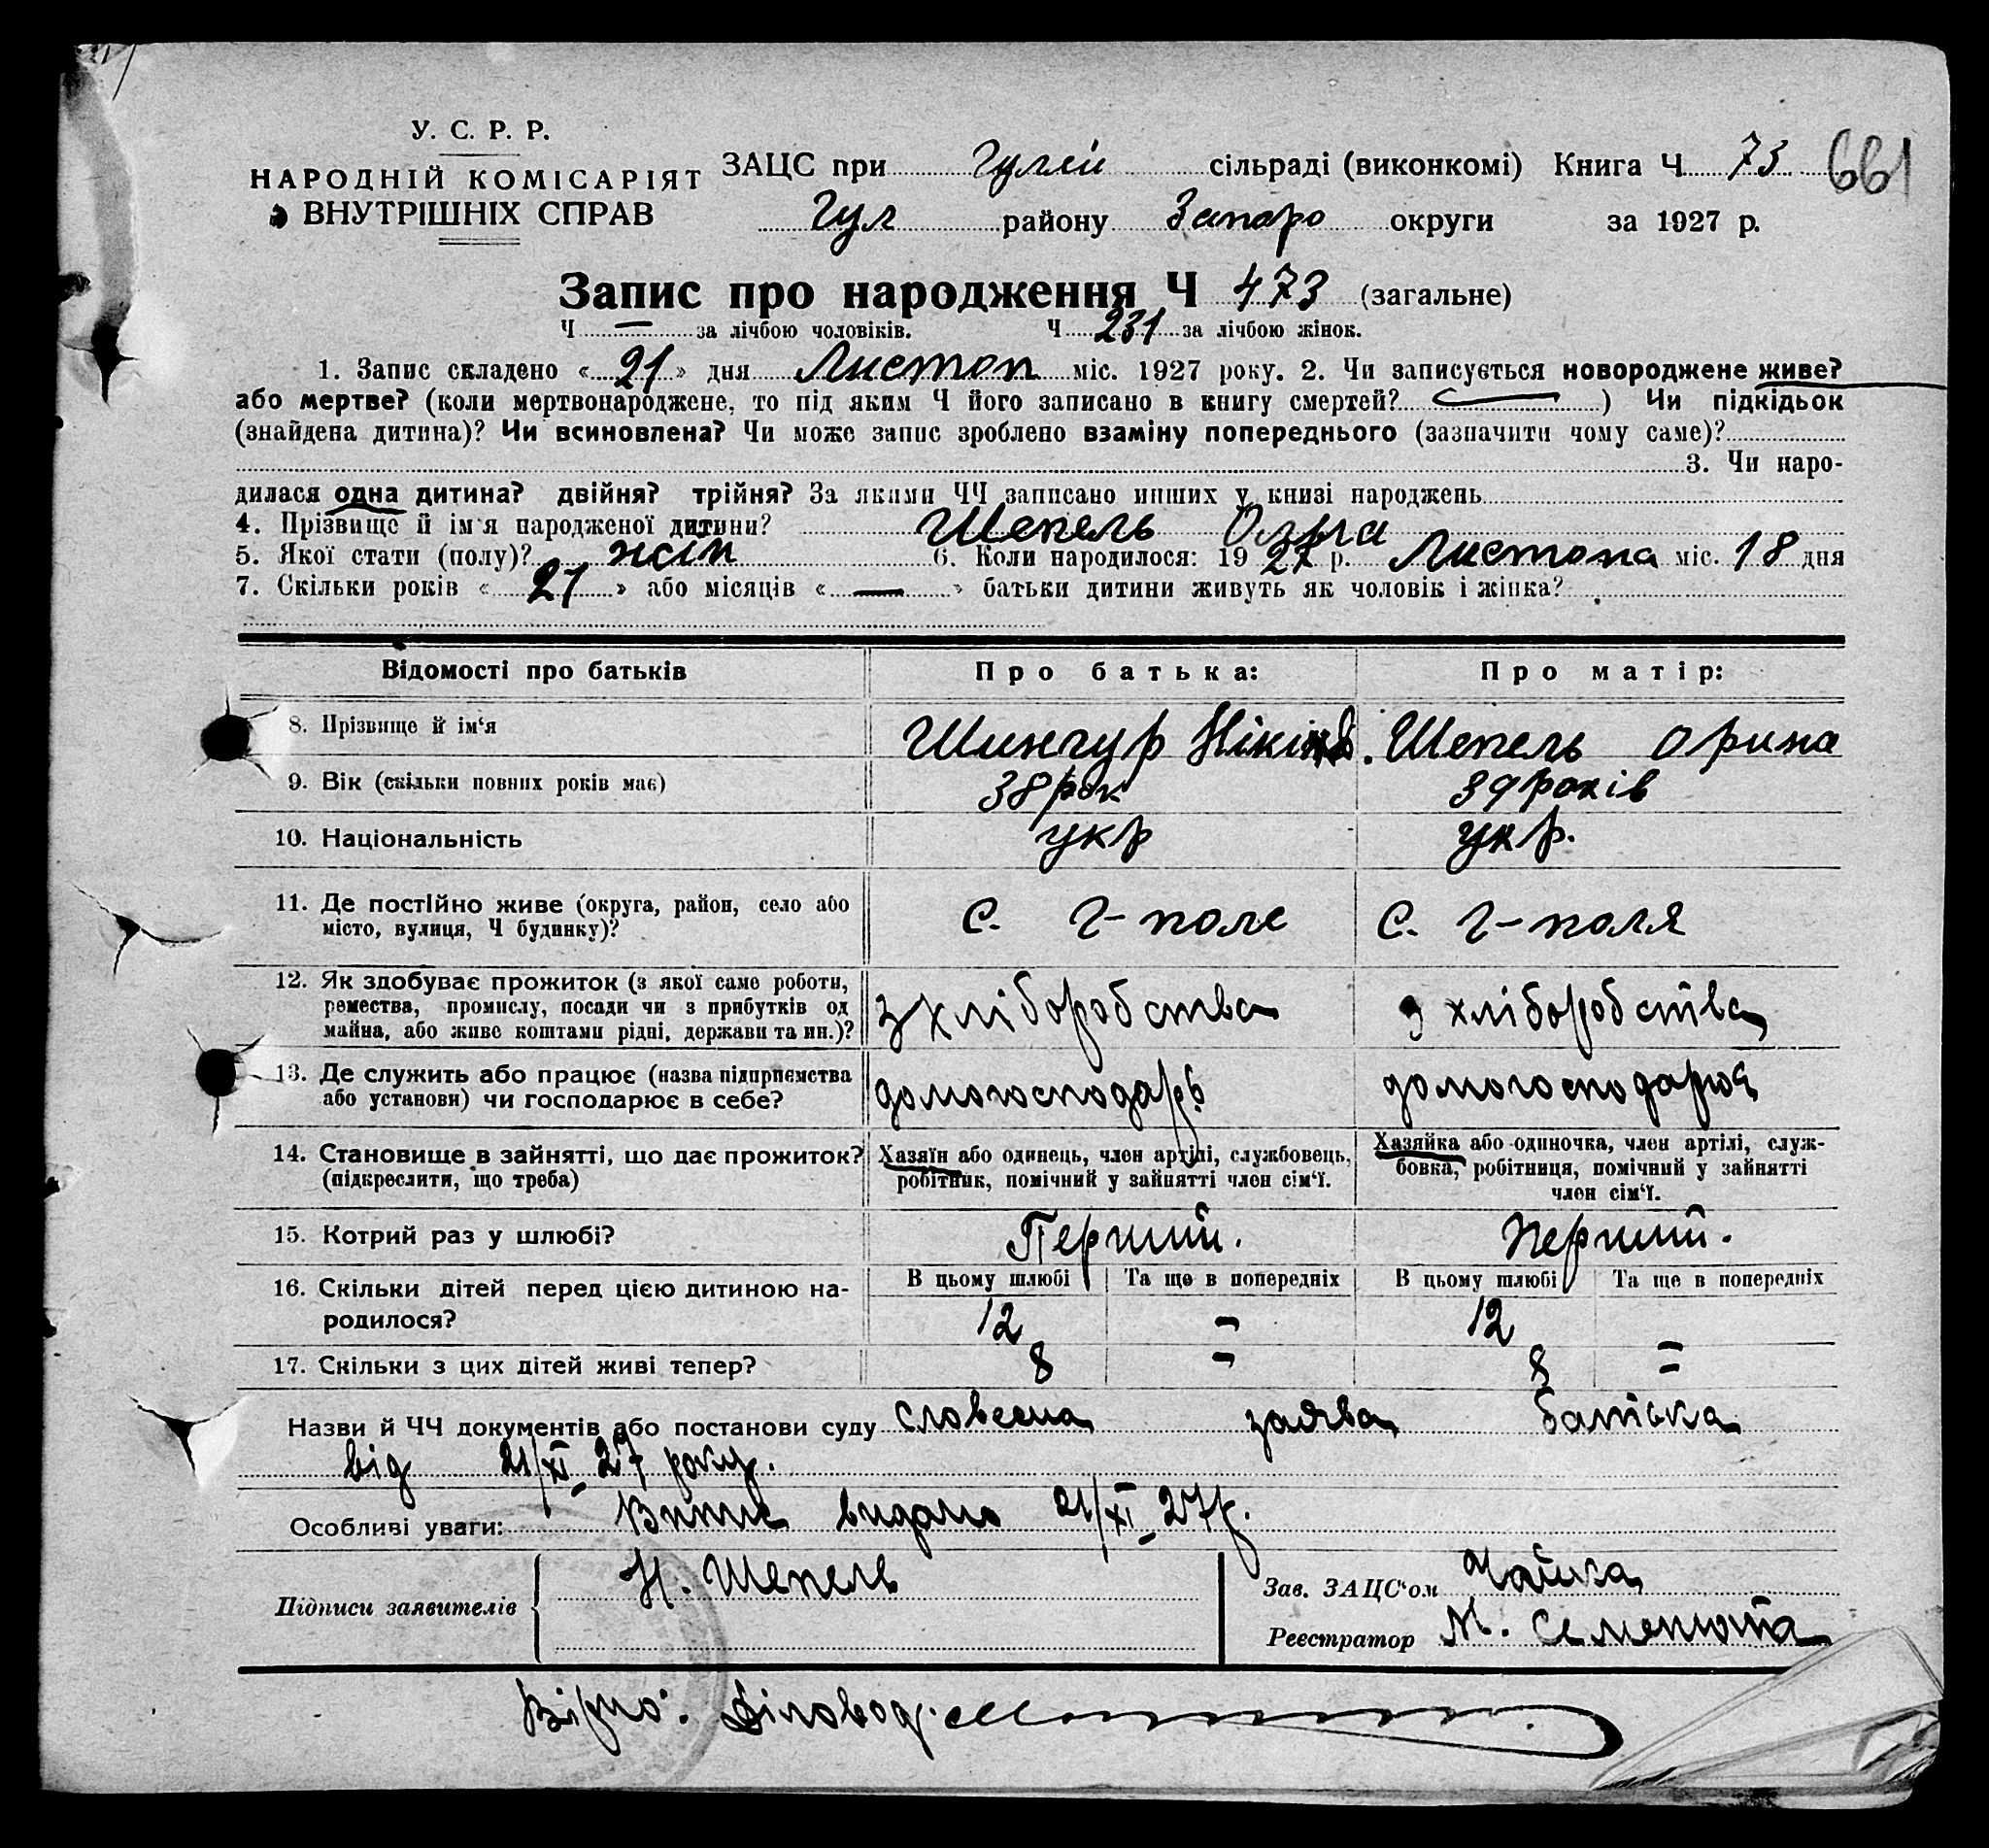 661
У. С. Р. Р.
НАРОДНІЙ КОМІСАРІЯТ
ВНУТРІШНІХ СПРАВ
ЗАЦС при Гуляй сільраді (виконкомі) Книга Ч 73
Гул району Запоро округи за 1927 р.
Запис про народження Ч 473 (загальне)
Ч — за лічбою чоловіків. Ч 231 за лічбою жінок.
1. Запис складено « 21 » дня Листоп міс. 1927 року. 2. Чи записується новороджене живе?
або мертве? (коли мертвонароджене, то під яким Ч його записано в книгу смертей? — ) Чи підкідьок
(знайдена дитина)? Чи всиновлена? Чи може запис зроблено взаміну попереднього (зазначити чому саме)?
3. Чи наро-
дилася одна дитина? двійня? трійня? За якими ЧЧ записано инших у книзі народжень
4. Прізвище й ім'я народженої дитини? Шепель Ольга
5. Якої стати (полу)? жін 6. Коли народилося: 19 27 р. Листопа міс. 18 дня
7. Скільки років « 21 » або місяців « — » батьки дитини живуть як чоловік і жінка?
Відомості про батьків Про батька: Про матір:
8. Прізвище й ім‘я Шепель Орина
9. Вік (скільки повних років має) 38 рок 39 років
10. Національність укр укр.
11. Де постійно живе (округа, район, село або
місто, вулиця, Ч будинку)? С. Г-поле С. Г-поля
12. Як здобуває прожиток (з якої саме роботи,
ремества, промислу, посади чи з прибутків од
майна, або живе коштами рідні, держави та ин.)? з хліборобства з хліборобства
13. Де служить або працює (назва підприємства
або установи) чи господарює в себе? домогосподарь домогосподарка
14. Становище в зайнятті, що дає прожиток?
(підкреслити, що треба)
Хазяїн або одинець, член артілі, службовець,
робітник, помічний у зайнятті член сім‘ї.
Хазяйка або одиночка, член артілі, служ-
бовка, робітниця, помічний у зайнятті
член сім‘ї.
15. Котрий раз у шлюбі? Перший. Перший.
16. Скільки дітей перед цією дитиною на-
родилося?
В цьому шлюбі Та ще в попередніх В цьому шлюбі Та ще в попередніх
12 - 12 -
17. Скільки з цих дітей живі тепер? 8 - 8 -
Назви й ЧЧ документів або постанови суду словесна заява батька
від 21/XI-27 року.
Особливі уваги: Випис видано 21/XI-27р.
Підписи заявителів Н. Шепель
Зав. ЗАЦС‘ом Чайка
Реєстратор М. Семенюта
Вірно: Діловод.